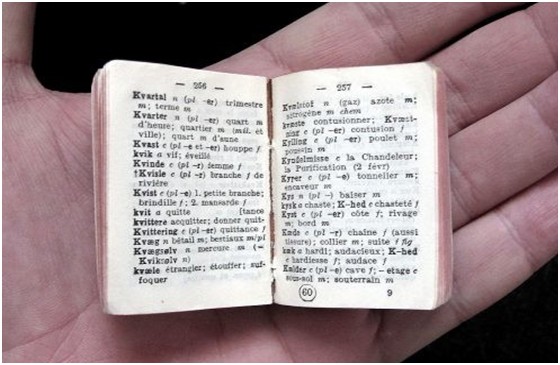 — 256 —
Kvartal n (pl -er) trimestre
m; terme m
Kvarter n (pl -er) quart m
d'heure; quartier m (mil. et
ville); quart m d'une
Kvast c (pl -e et -er) houppe f
kvik a vif; éveillé
Kvinde c (pl -r) femme f
†Kvisle c (pl -r) branche f de
rivière
Kvist c (pl -e) 1. petite branche;
brindille f; 2. mansarde f
kvit a quitte [tance
kvittere acquitter; donner quit-
Kvittering c (pl -er) quittance f
Kvæg n bétail m; bestiaux m/pl
Kvægsølv n mercure m (=
Kviksølv n)
kvæle étrangler; étouffer; suf-
foquer
— 257 —
Kvælstof n (gaz) azote m;
nitrogène m chem
kvæste contusionner; Kvæst-
ning c (pl -er) contusion f
Kylling c (pl -er) poulet m;
poussin m
Kyndelmisse c la Chandeleur;
la Purification (2 févr)
Kyper c (pl -e) tonnelier m;
encaveur m
Kys n (pl -) baiser m
kysk a chaste; K-hed c chasteté f
Kyst c (pl -er) côte f; rivage
m; bord m
Kæde c (pl -r) chaîne f (aussi
tissure); collier m; suite f fig
kæk a hardi; audacieux; K-hed
c hardiesse f; audace f
Kælder c (pl -e) cave f; – etage c
sous-sol m; souterrain m
60 9